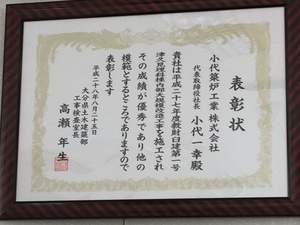 表彰状
小代築炉工業 株式会社
代表取締役社長
小代一幸殿
貴社は平成二十七年度教財臼建第一号
津久見理科棟内部大規模改造工事を施工され
その成績が優秀であり他の
模範とするところでありますので
表彰します
平成二十八年八月二十五日
大分県土木建築部
工事検査室長
高瀬 年生